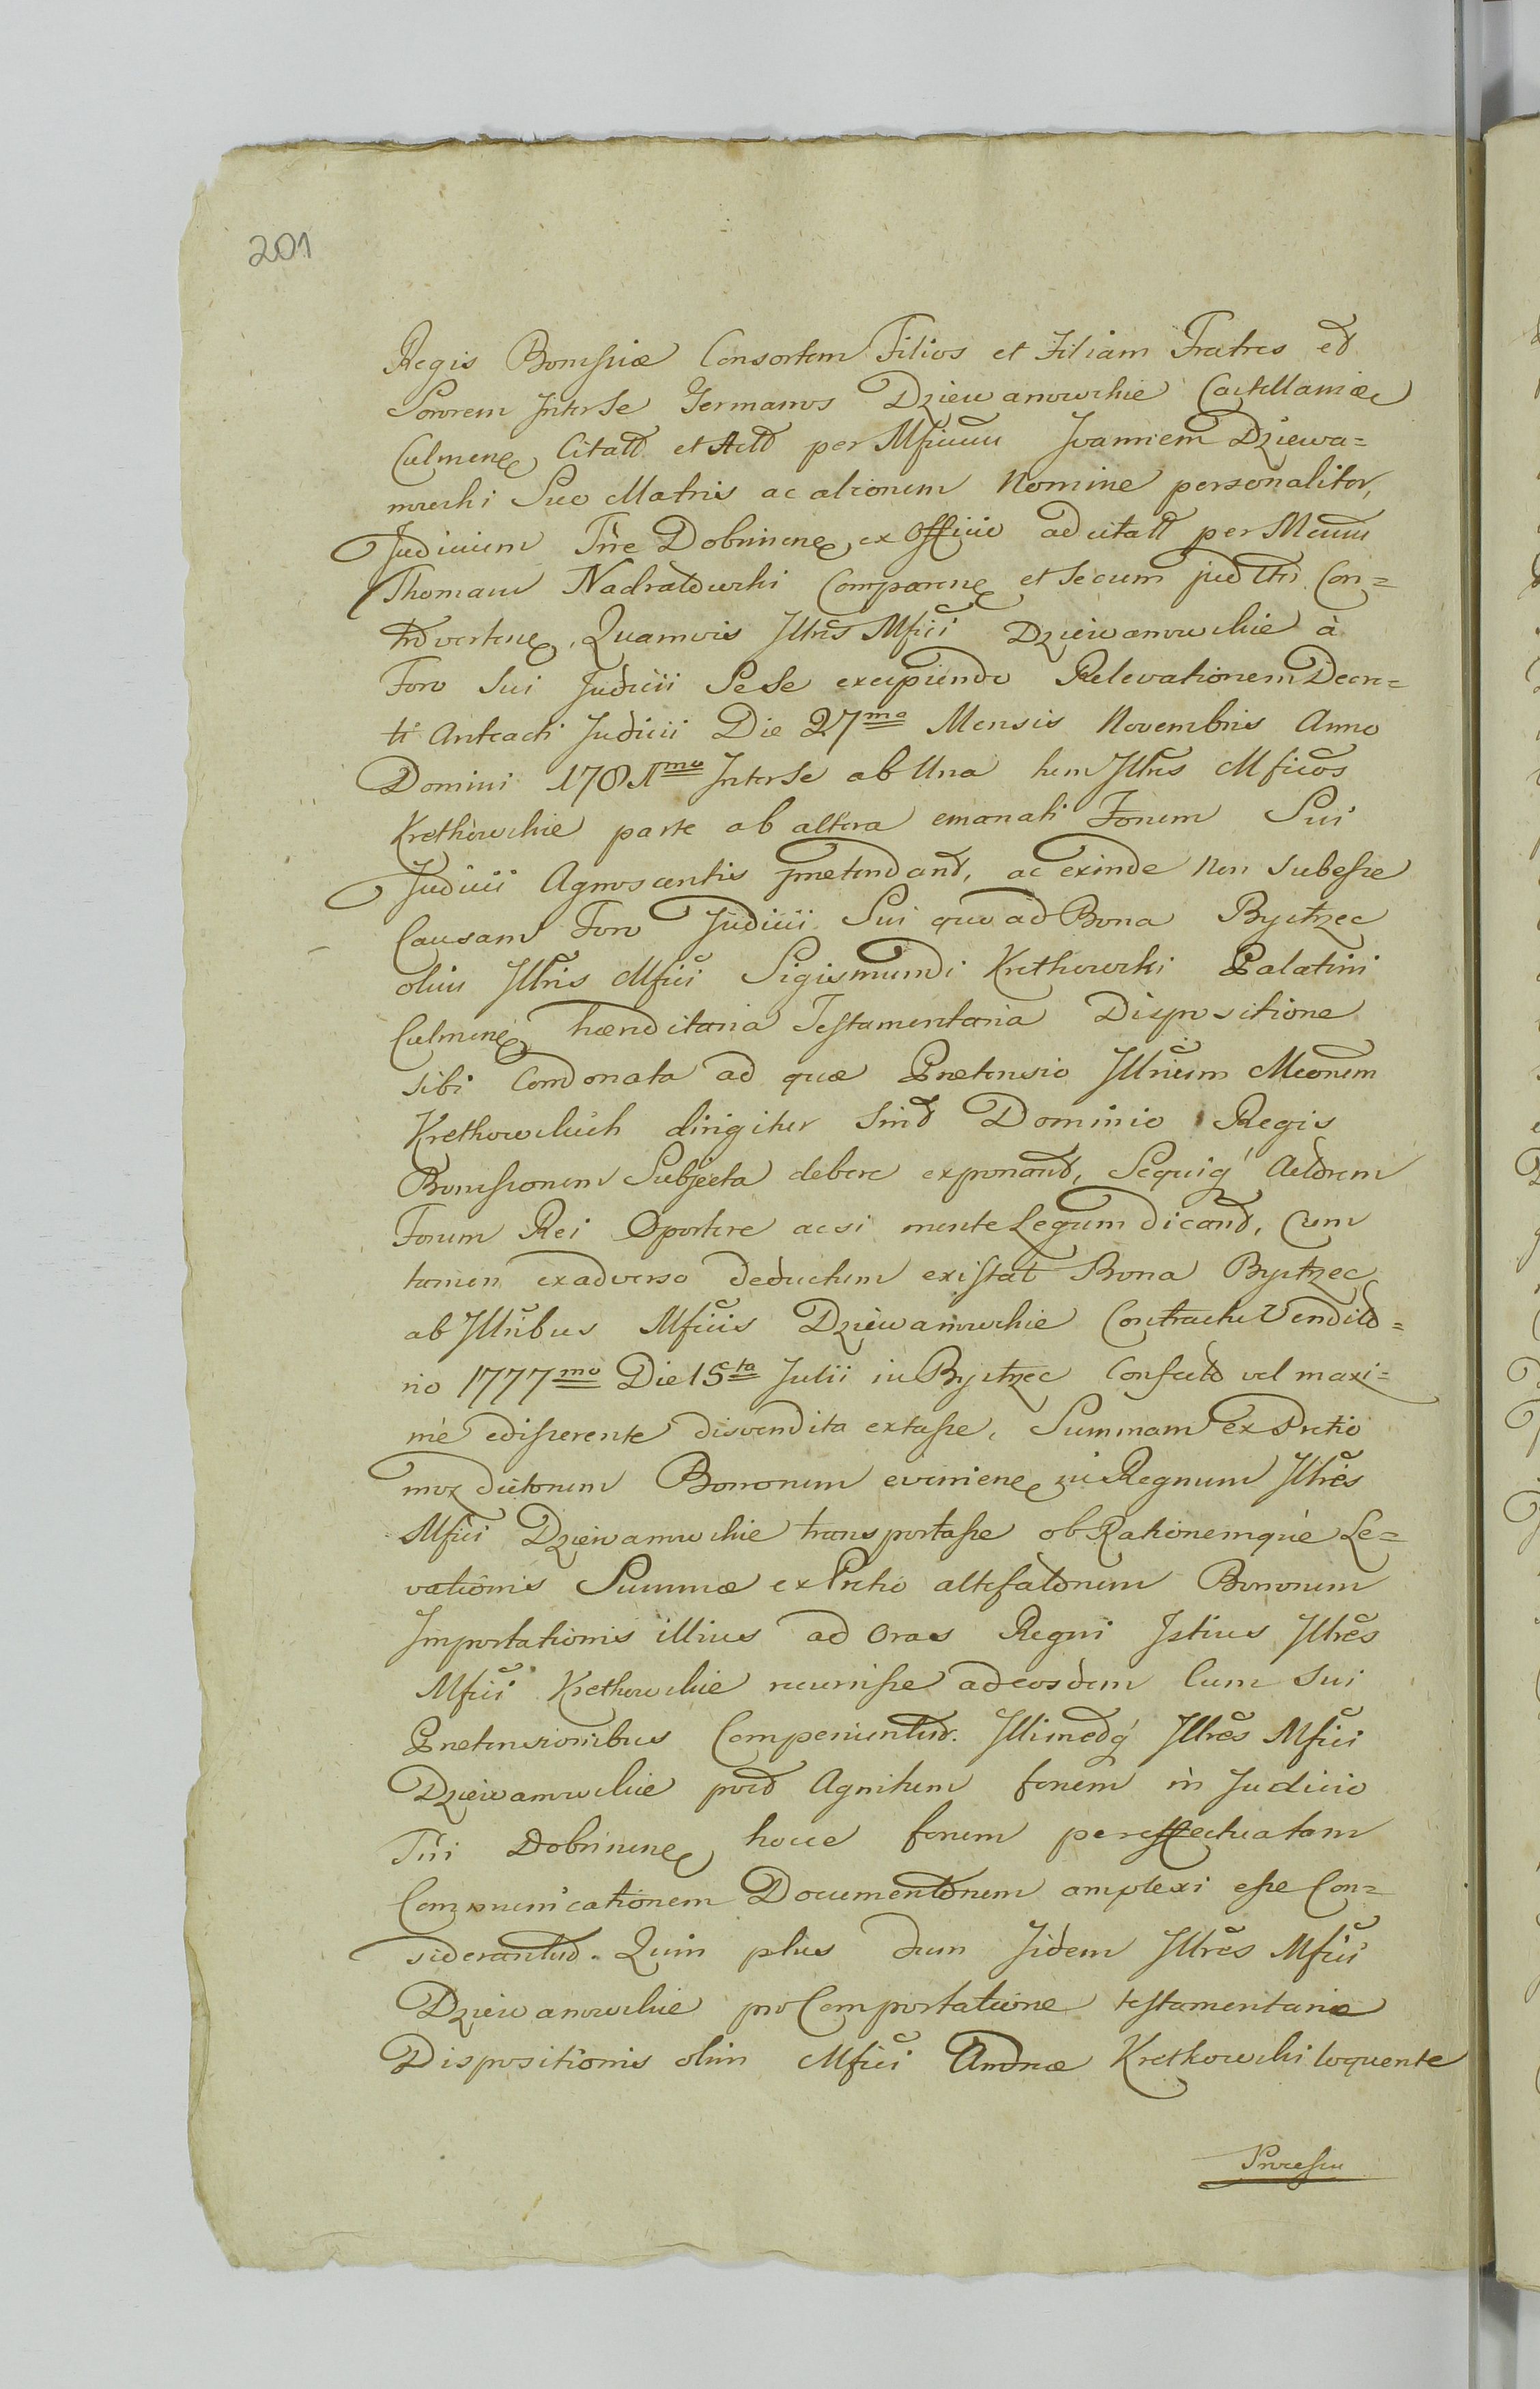 201
Regis Borussiæ Consortem Filios et Filiam Fratres et
Sororem Inter Se Germanos Dziewanowskie Castellaniæ
Culmene Citatt et Actt per Mficum Joannem Dziewa=
nowski Suo Matris ac aliorum Nomine personaliter,
Judicium Tre Dobrinene, ex Officio ad citatt per Mcum
Thomam Nadratowski Comparene et Secum judtri Con=
trovertene, Quamvis Illres Mfici Dziewanowskie à
Foro Sui Judicii Sese excipiendo Relevationem Decre=
ti Anteacti Judicii Die 27mo Mensis Novembris Anno
Domini 1781mo Inter Se ab Una tum Illres Mficos
Kretkowskie parte ab altera emanati Forum Sui
Judicii Agnoscentis prætendant, ac exinde Non Subesse
Causam Foro Judicii Sui quo ad Bona Bystrzec
olim Illris Mfici Sigismundi Kretkowski Palatini
Culmene hæreditaria Testamentaria Dispositione
sibi Condonata ad quæ Prætensio Illrium Mcorum
Kretkowskich dirigitur Smo Dominio Regis
Borussiorum Subjecta debere exponant, Sequiq Actorem
Forum Rei Oportere acsi mente Legum dicant, Cum
tamen exadverso deductum existat Bona Bystrzec
ab Illribus Mficis Dziewanowskie Contractu Vendito=
rio 1777mo Die 15ta Julii in Bystrzec Confecto vel maxi=
mè edisserente disvendita extasse, Summam ex Pretio
mox dictorum Bonorum eveniene in Regnum Illres
Mfici Dziewanowskie transportasse ob Rationemque Le=
vationis Summæ ex Pretio altefatorum Bonorum
Importationis illius ad Oras Regni Istius Illres
Mfici Kretkowskie recurisse ad eosdem Cum Sui
Prætensionibus Comperiuntur. Illimedq Illres Mfici
Dziewanowskie post Agnitum forum in Judicio
Tri Dobrinene hocce forum pereffectuatam
Communicationem Documentorum amplexi esse Con=
siderantur. Quin plus dum Iidem Illres Mfici
Dziewanowskie pro Comportatione testamentariæ
Dispositionis olim Mfici Andreæ Kretkowski loquente
Processu